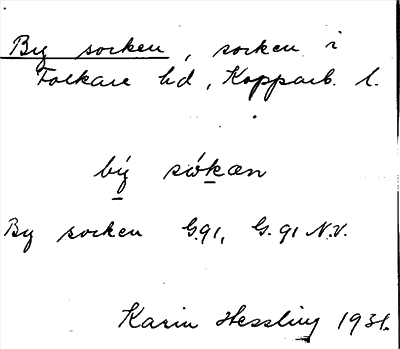 By socken, socken i
Folkare hd, Kopparb. l.
bý sókan
By socken G.91, G.91 N.V.
Karin Hessling 1931.